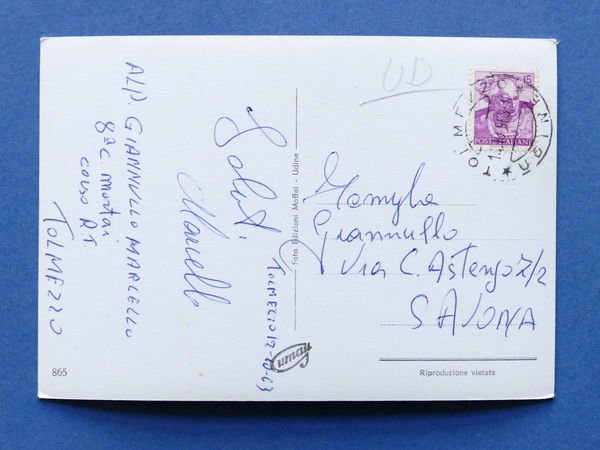 ALP. GIANNULLO MARCELLO
8ª C mortai
corso A.T.
TOLMEZZO
Saluti
Marcello
TOLMEZZO 12-10-63
Foto Edizioni Maffei - Udine
UD
15
POSTE ITALIANE
TOLMEZZO
UDINE
Famiglia
Giannullo
Via C. Astengo 7/2
SAVONA
865
Riproduzione vietata